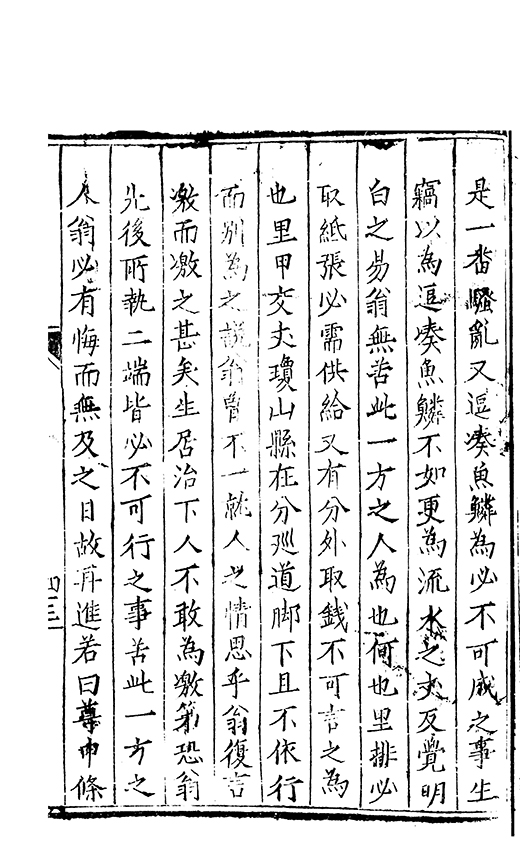 是一畨騷亂又逗凑魚鱗為必不可成之事生
竊以為逗凑魚鱗不如更為流水之丈反覺明
白之易翁無苦此一方之人為也何也里排必
取紙張必需供給又有分外取錢不可言之為
也里甲交丈瓊山縣在分廵道脚下且不依行
而别為之說翁曾不一就人之情思乎翁復言
激而激之甚矣生居治下人不敢為激第恐翁
先後所執二端皆必不可行之事苦此一方之
人翁必有悔而無及之日故再進若曰尊申條
四三